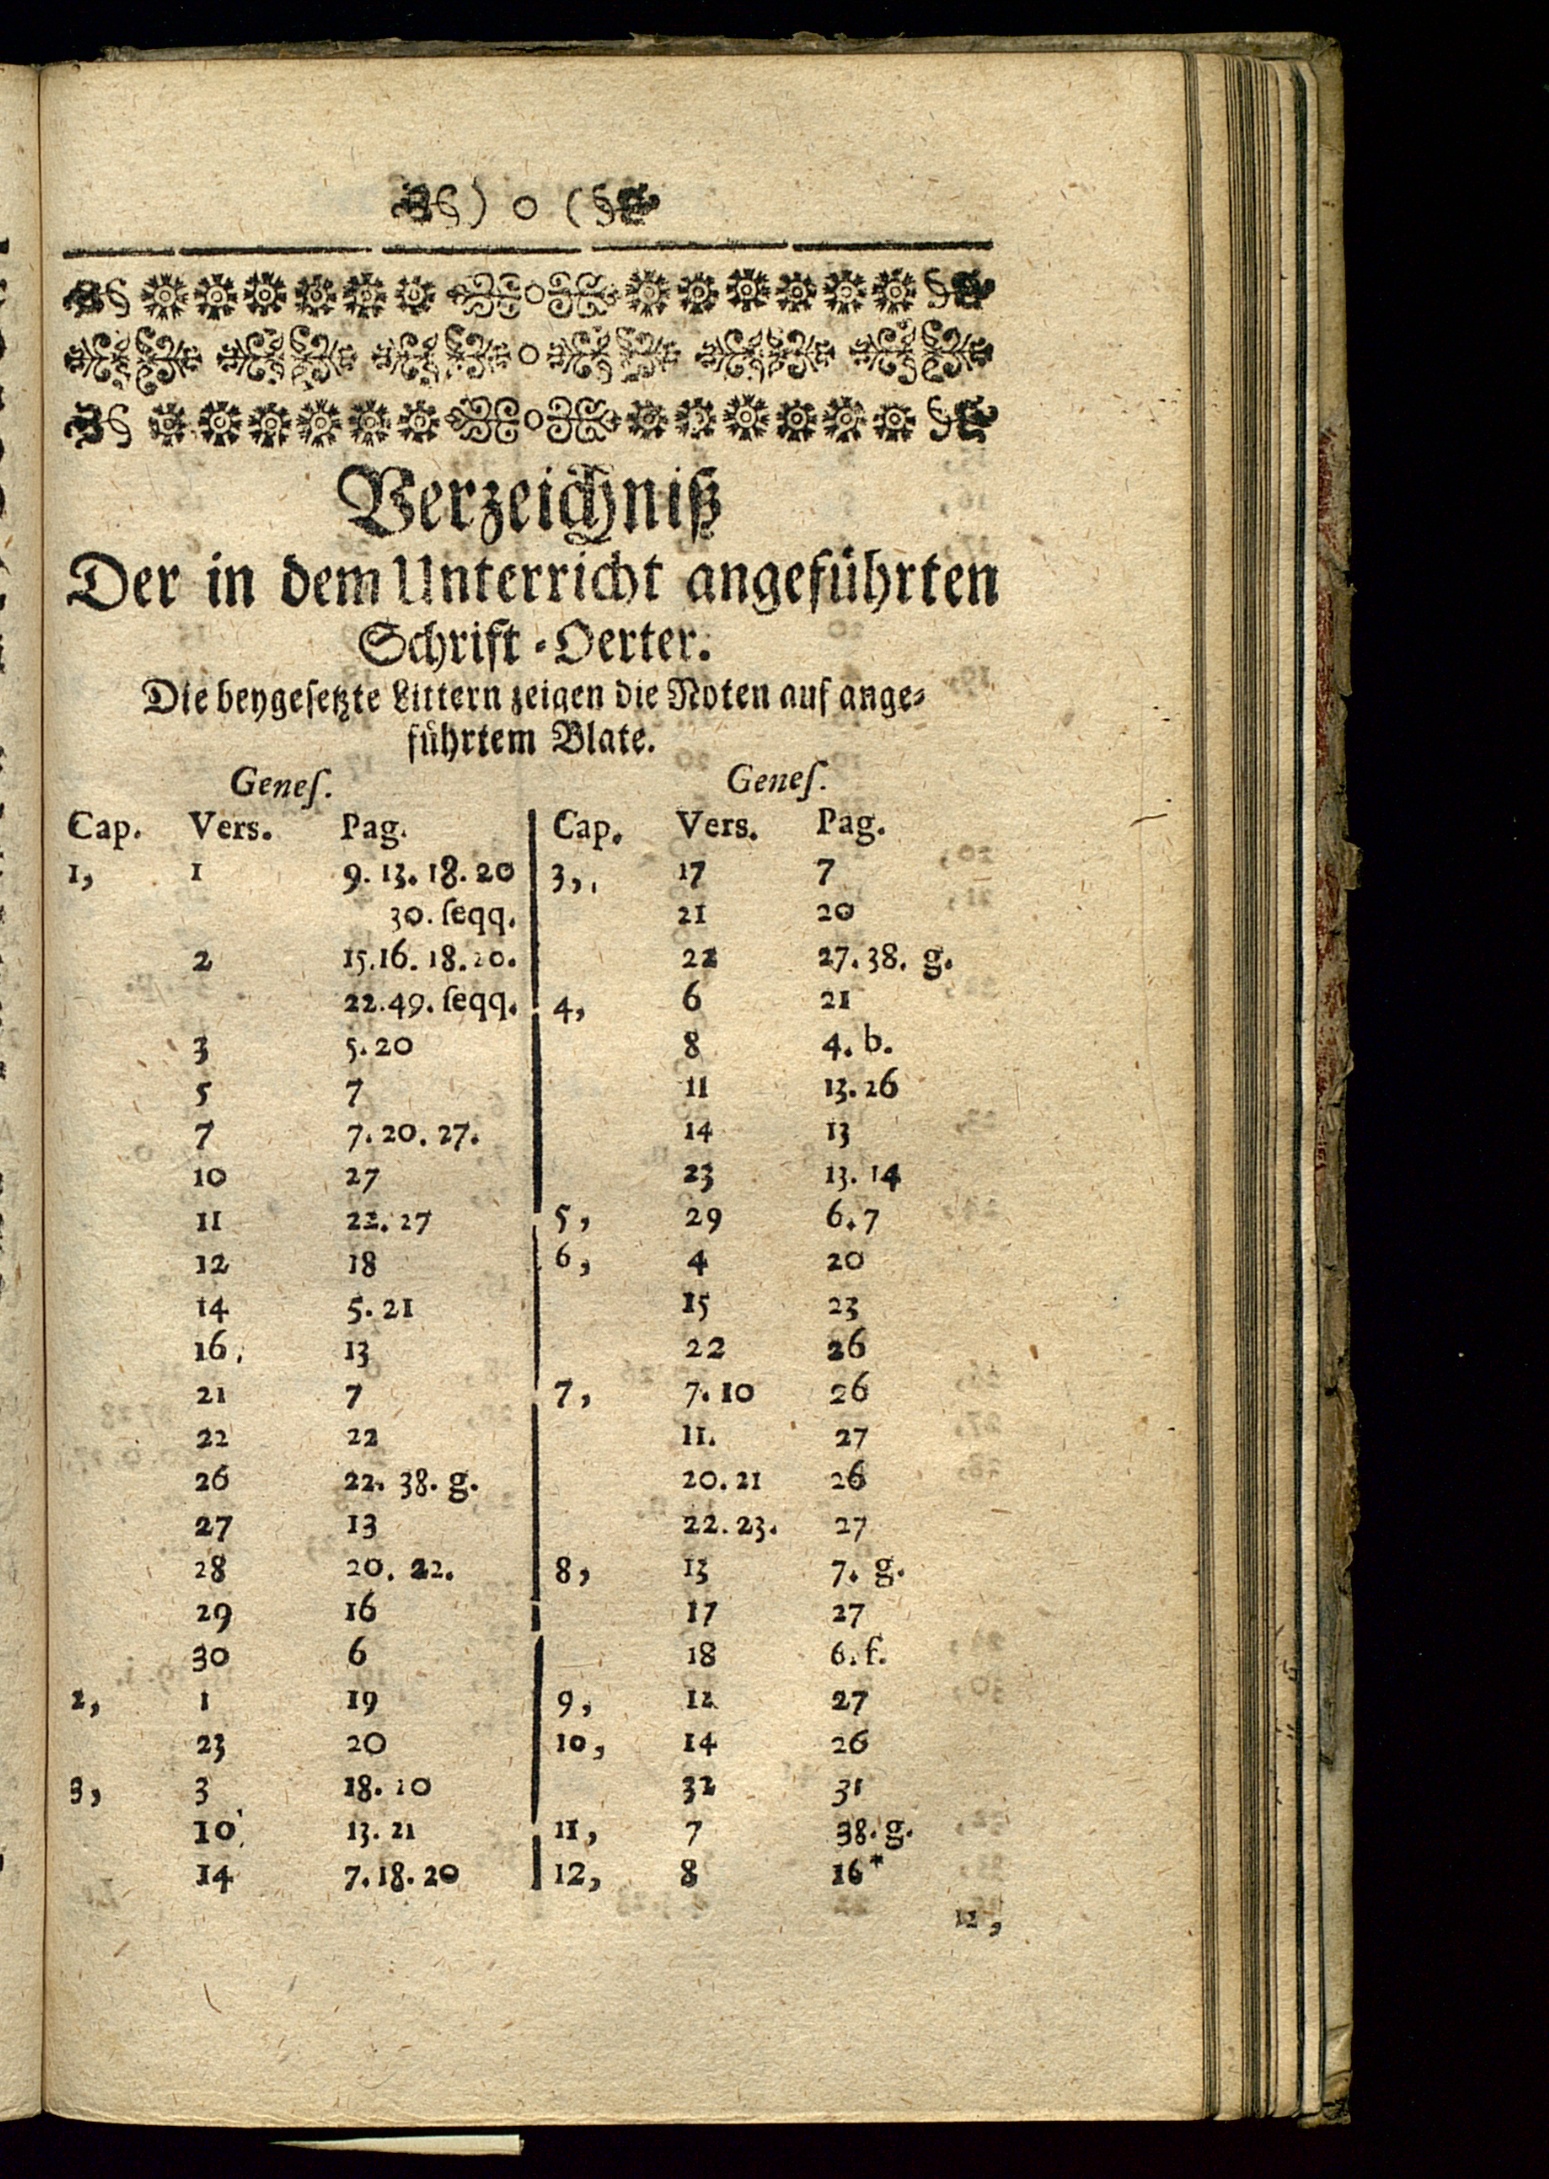 ) o (
Verzeichniß
Der in dem Unterricht angeführten
Schrift-Oerter.
Die beygesetzte Littern zeigen die Noten auf ange-
führtem Blate.
Geneſ.
Cap. Vers. Pag.
1, 1 9. 13. 18. 20
30. ſeqq.
2 15.16. 18. 20.
22.49. ſeqq.
3 5. 20
5 7
7 7. 20. 27.
10 27
11 22. 27
12 18
14 5. 21
16. 13
21 7
22 22
26 22. 38. g.
27 13
28 20. 22.
29 16
30 6
2, 1 19
23 20
3, 3 18. 20
10 13. 21
14 7. 18. 20
Geneſ.
Cap. Vers. Pag.
3,. 17 7
21 20
22 27. 38. g.
4, 6 21
8 4. b.
11 13. 26
14 13
23 13. 14
5, 29 6. 7
6, 4 20
15 23
22 26
7, 7. 10 26
11. 27
20. 21 26
22. 23. 27
8, 13 7. g.
17 27
18 6. f.
9, 12 27
10, 14 26
32 31
11, 7 38. g.
12, 8 16*
12,